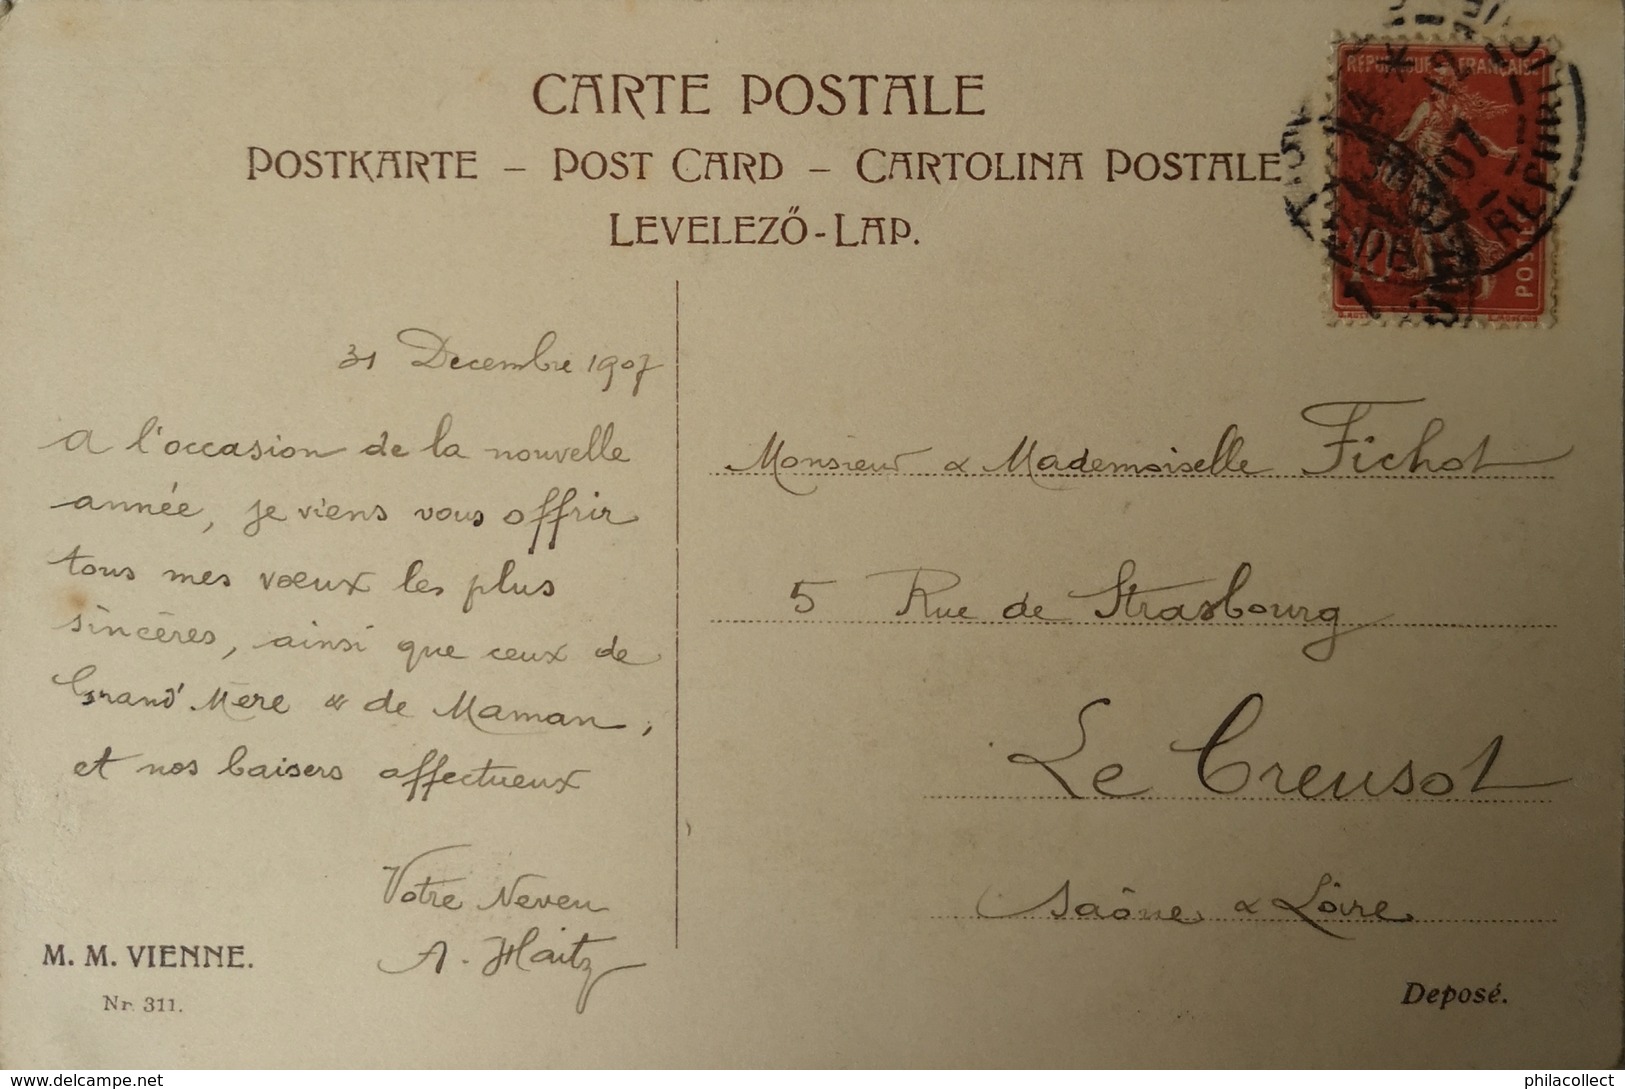 CARTE POSTALE
POSTKARTE – POST CARD – CARTOLINA POSTALE
LEVELEZŐ-LAP.
RÉPUBLIQUE FRANÇAISE
POSTES
31 Decembre 1907
A l'occasion de la nouvelle
année, je viens vous offrir
tous mes vœux les plus
sincères, ainsi que ceux de
Grand' Mère & de Maman,
et nos baisers affectueux
Votre Neveu
A. Haitz
M. M. VIENNE.
Nr. 311.
Monsieur & Mademoiselle Fichot
5 Rue de Strasbourg
Le Creusot
Saône & Loire
Deposé.
https://www.delcampe.net
philacollect